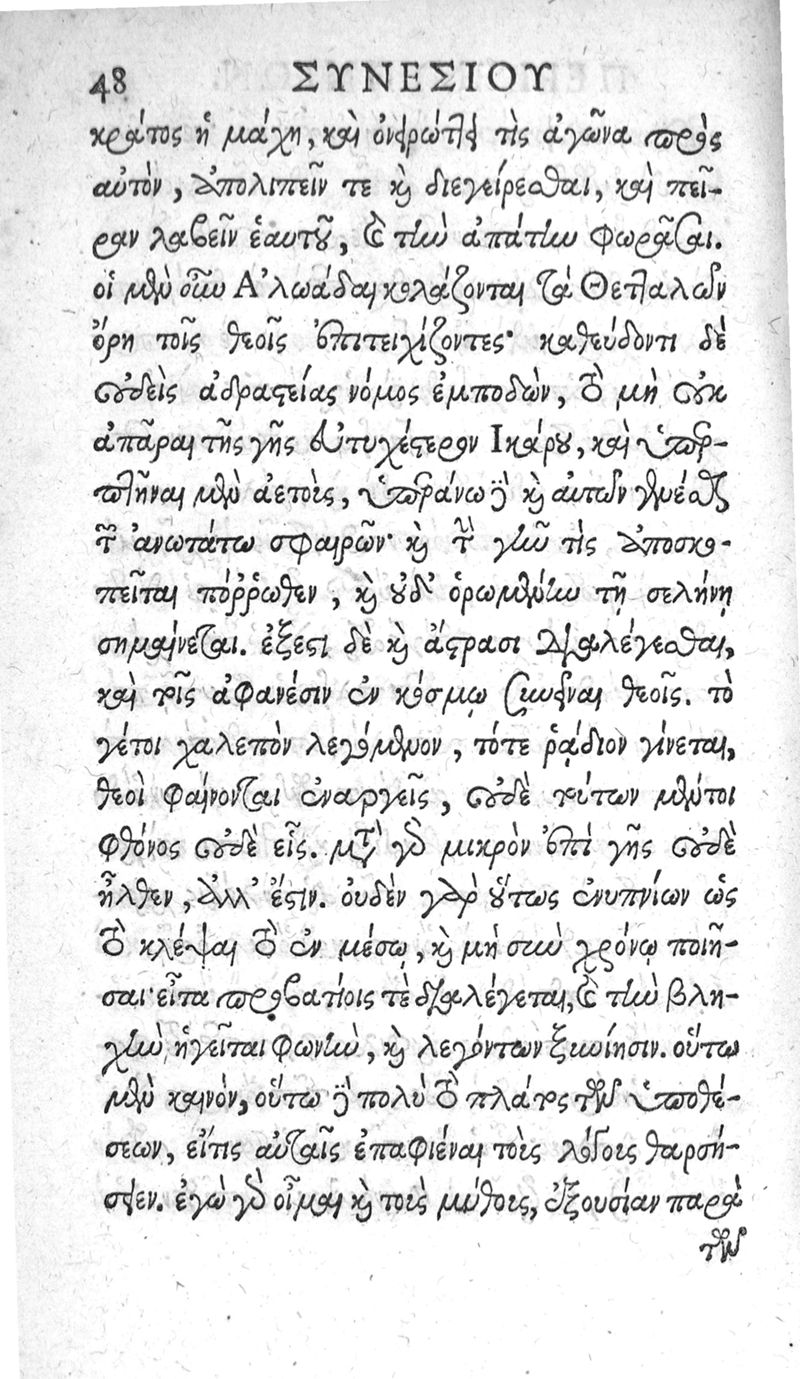 48 ΣΥΝΕΣΙΟΥ
κράτος ἡ μάχη, καὶ ὀνειρώτλει τὶς ἀγῶνα πρὸς
αὐτὸν, ἀπολιπεῖν τε καὶ διεγείρεσθαι, καὶ πεῖ-
ραν λαβεῖν ἑαυτοῦ, καὶ τὴν ἀπάτην φωρᾶσαι.
οἱ μὲν οὖν Ἀλωάδαι κολάζονται τὰ Θετταλῶν
ὄρη τοῖς θεοῖς ἐπιτειχίζοντες· καθεύδοντι δὲ
οὐδεὶς ἀδραστείας νόμος ἐμποδὼν, τὸ μὴ οὐκ
ἀπᾶραι τῆς γῆς εὐτυχέστερον Ἰκάρου, καὶ ὑπερ-
πτῆναι μὲν ἀετοὺς, ὑπεράνω δὲ καὶ αὐτῶν γενέσθαι
τῶν ἀνωτάτω σφαιρῶν· καὶ τὴν γῆν τὶς ἀποσκο-
πεῖται πόῤῥωθεν, καὶ οὐδ' ὁρωμένην τῇ σελήνῃ
σημαίνεται. ἔξεστι δὲ καὶ ἄστρασι διαλέγεσθαι,
καὶ τοῖς ἀφανέσιν ἐν κόσμῳ συνεῖναι θεοῖς. τὸ
γέτοι χαλεπὸν λεγόμενον, τότε ῥάδιον γίνεται,
θεοὶ φαίνονται ἐναργεῖς, οὐδὲ τούτων μέντοι
φθόνος οὐδὲ εἷς. μετὰ γὰρ μικρὸν ἐπὶ γῆς οὐδὲ
ἦλθεν, ἀλλ' ἔστιν. οὐδὲν γὰρ οὕτως ἐνυπνίων ὡς
τὸ κλέψαι τὸ ἐν μέσῳ, καὶ μὴ σὺν χρόνῳ ποιῆ-
σαι· εἶτα προβατίοις τὲ διαλέγεται, καὶ τὴν βλη-
χὴν, ἡγεῖται φωνὴν, καὶ λεγόντων ξυνίησιν. οὕτω
μὲν καινὸν, οὕτω δὲ πολὺ τὸ πλάτος τῶν ὑποθέ-
σεων, εἴτις αὐταῖς ἐπαφιέναι τοὺς λόγους θαρσή-
σειεν. ἐγὼ γὰρ οἶμαι καὶ τοὺς μύθους, ἐξουσίαν παρὰ
τῶν